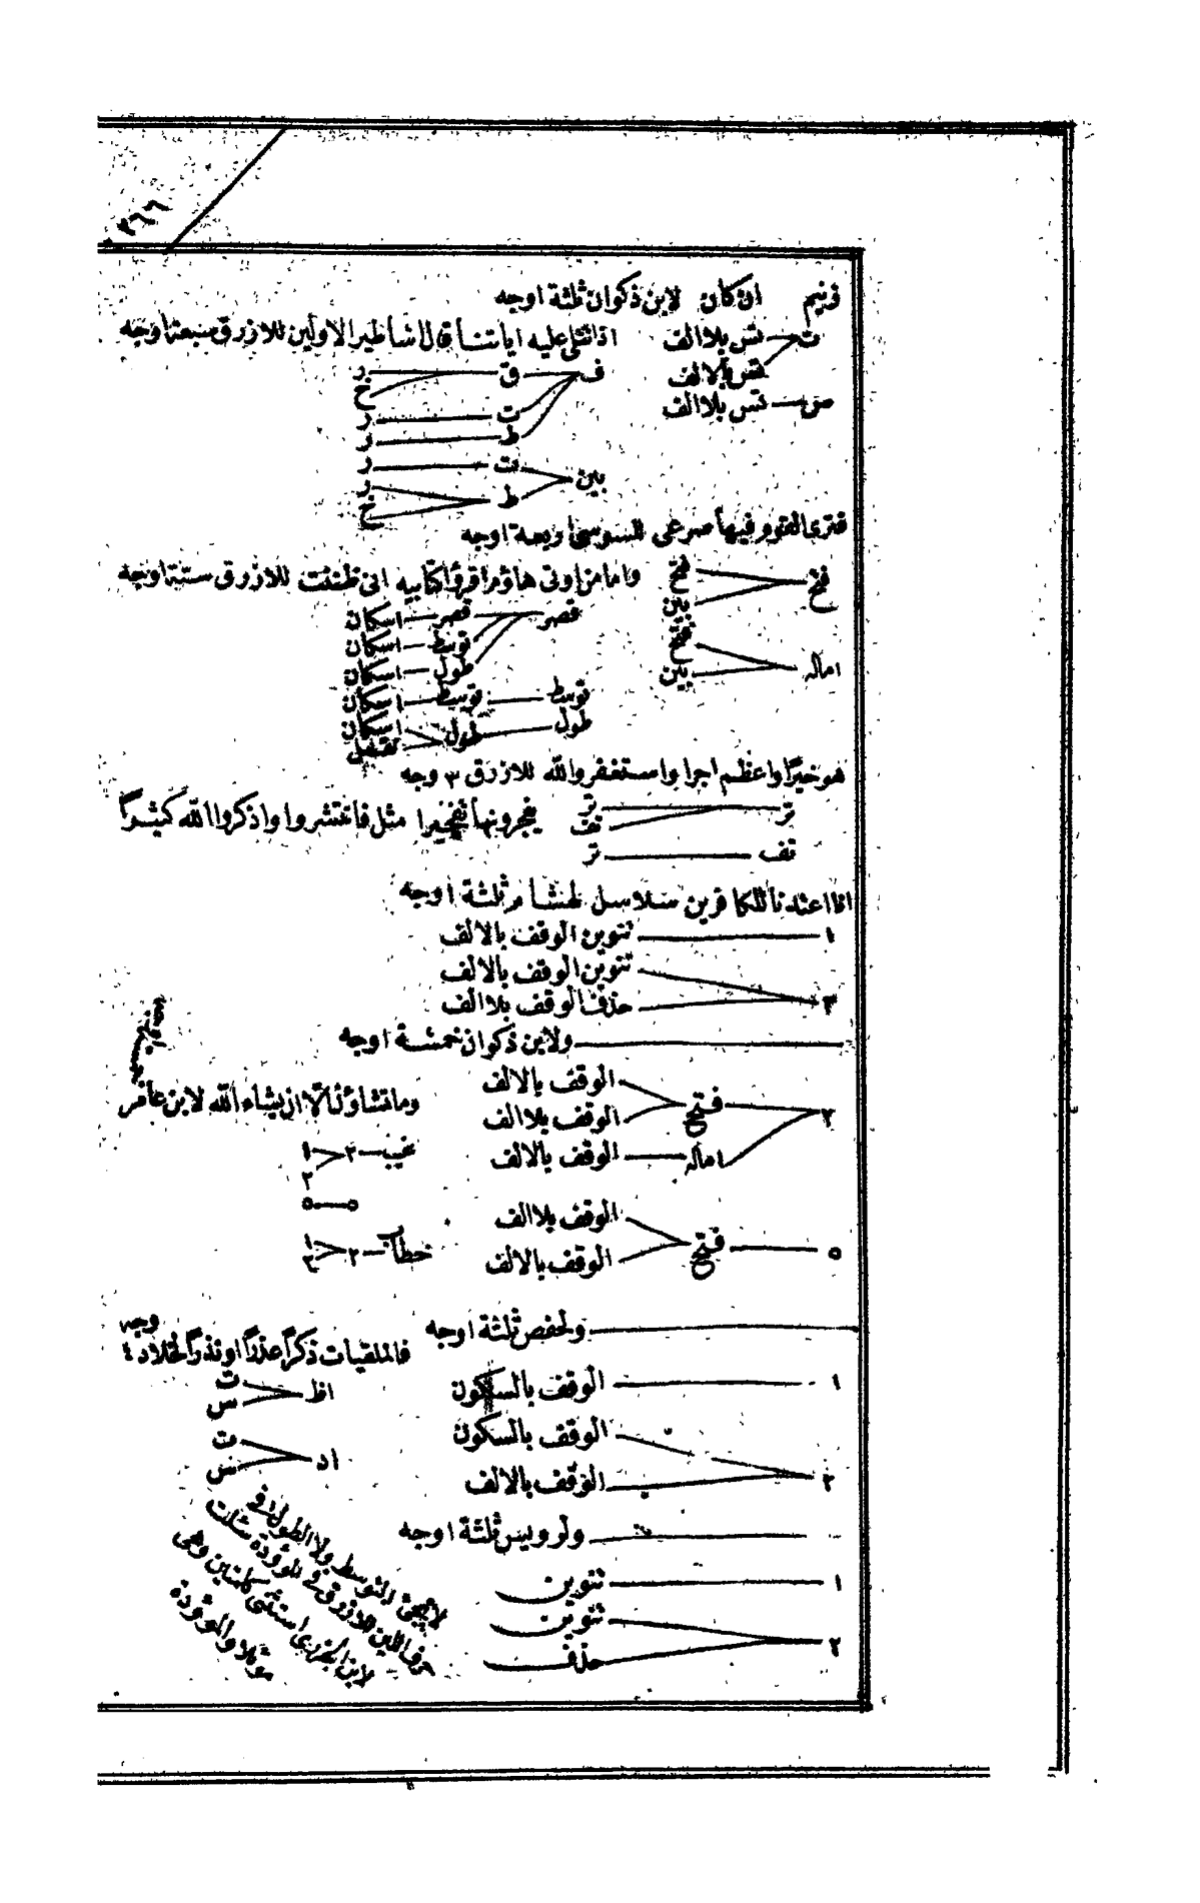 ٣٦٦
زنيم ان كان لابن ذكوان ثلثة اوجه
ت تس بلا الف
تس بلا الف
ص تس بلا الف
اذا تتلى عليه اياتنا قال اساطير الاولين للازرق سبعة اوجه
ف ق ر
خ
ت ر
ط ر
بين ت ر
ط ر
خ
فترى القوم فيها صرعى للسوسى اربعة اوجه
فتح فتح
بين
اماله فتح
بين
واما من اوتى هاؤم اقرؤا كتابيه انى ظننت للازرق ستة اوجه
قصر قصر اسكان
توسط اسكان
طول اسكان
توسط توسط اسكان
طول طول اسكان
نقل
هو خيرا واعظم اجرا واستغفروا الله للازرق ٣ وجه
تر تر
تف
تف تر
يفجرونها تفجيرا مثل فانتشروا واذكروا الله كثيراً
انا اعتدنا للكافرين سلاسل لهشام ثلثة اوجه
١ تنوين الوقف بالالف
٣ تنوين الوقف بالالف
حذف الوقف بلا الف
ولابن ذكوان خمسة اوجه
٢ فتح الوقف بالالف
الوقف بلا الف
اماله الوقف بالالف
٥ فتح الوقف بلا الف
الوقف بالالف
وما تشاؤن الا ان يشاء الله لابن عامر
خمسة اوجه
غيب ٣ ١
٢
٥ ٥
خطاب ٢ ١
٣
ولحفص ثلثة اوجه
١ الوقف بالسكون
٢ الوقف بالسكون
الوقف بالالف
فالملقيات ذكراً عذراً او نذراً لخلاد ٤ وجه
اظ ت
س
اد ت
س
ولرويس ثلثة اوجه
١ تنوين
٢ تنوين
حذف
لا يجئ التوسط ولا الطول فى
حرف اللين للازرق فى الموؤدة
لابن الجزرى استثنى كلمتين وهى
موئلا والموؤدة